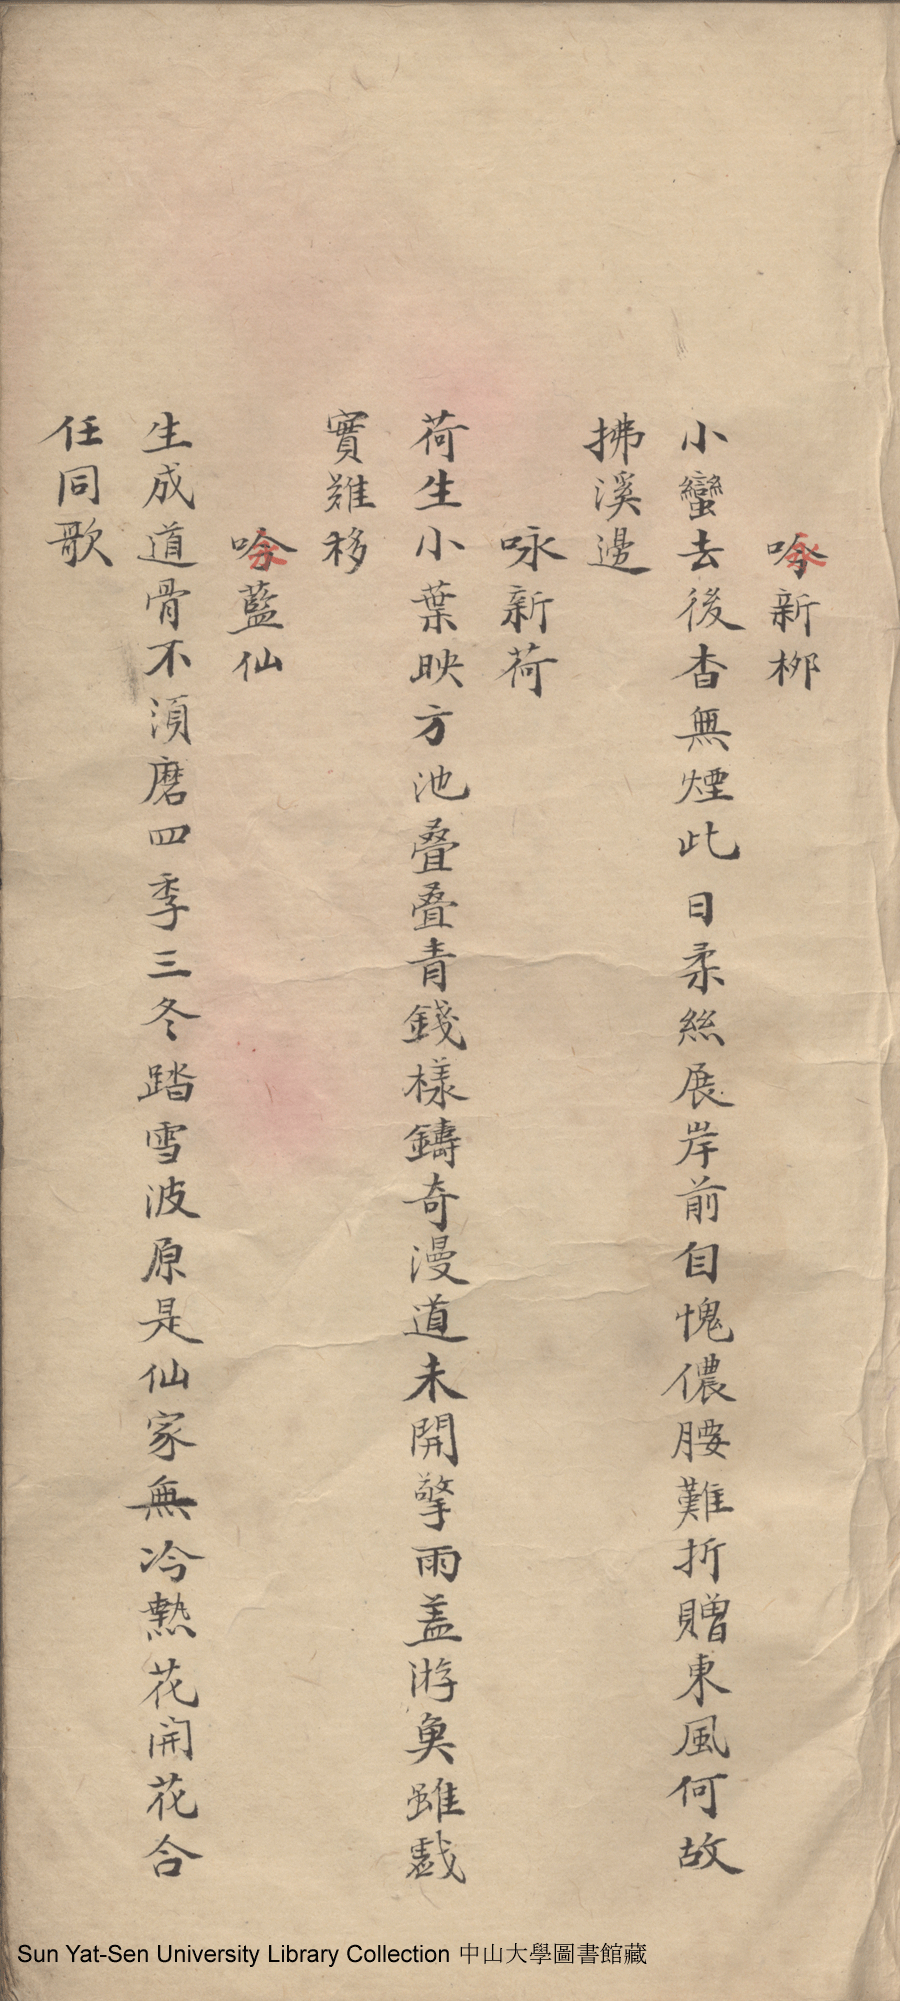 咏新栁
小蠻去後杳無煙此日柔絲展岸前自愧儂腰難折贈東風何故
拂溪邊
咏新荷
荷生小葉映方池叠叠青錢樣鑄奇漫道未開擎雨盖游奐雖戲
實難移
咏藍仙
生成道骨不湏磨四季三冬踏雪波原是仙家無冷熱花開花合
任同歌
Sun Yat-Sen University Library Collection 中山大學圖書館藏